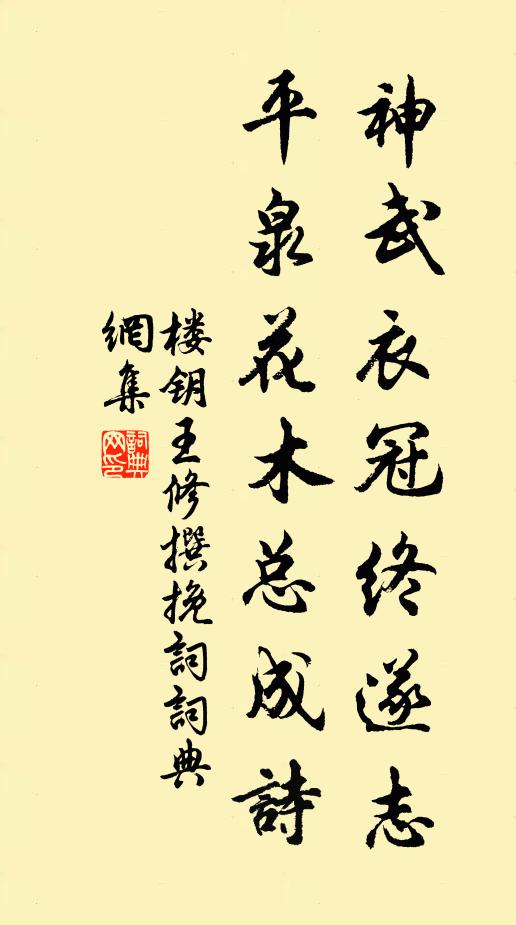 神武衣冠终遂志
平泉花木总成詩
楼钥王修撰挽詞詞典
網集
詞典
网印